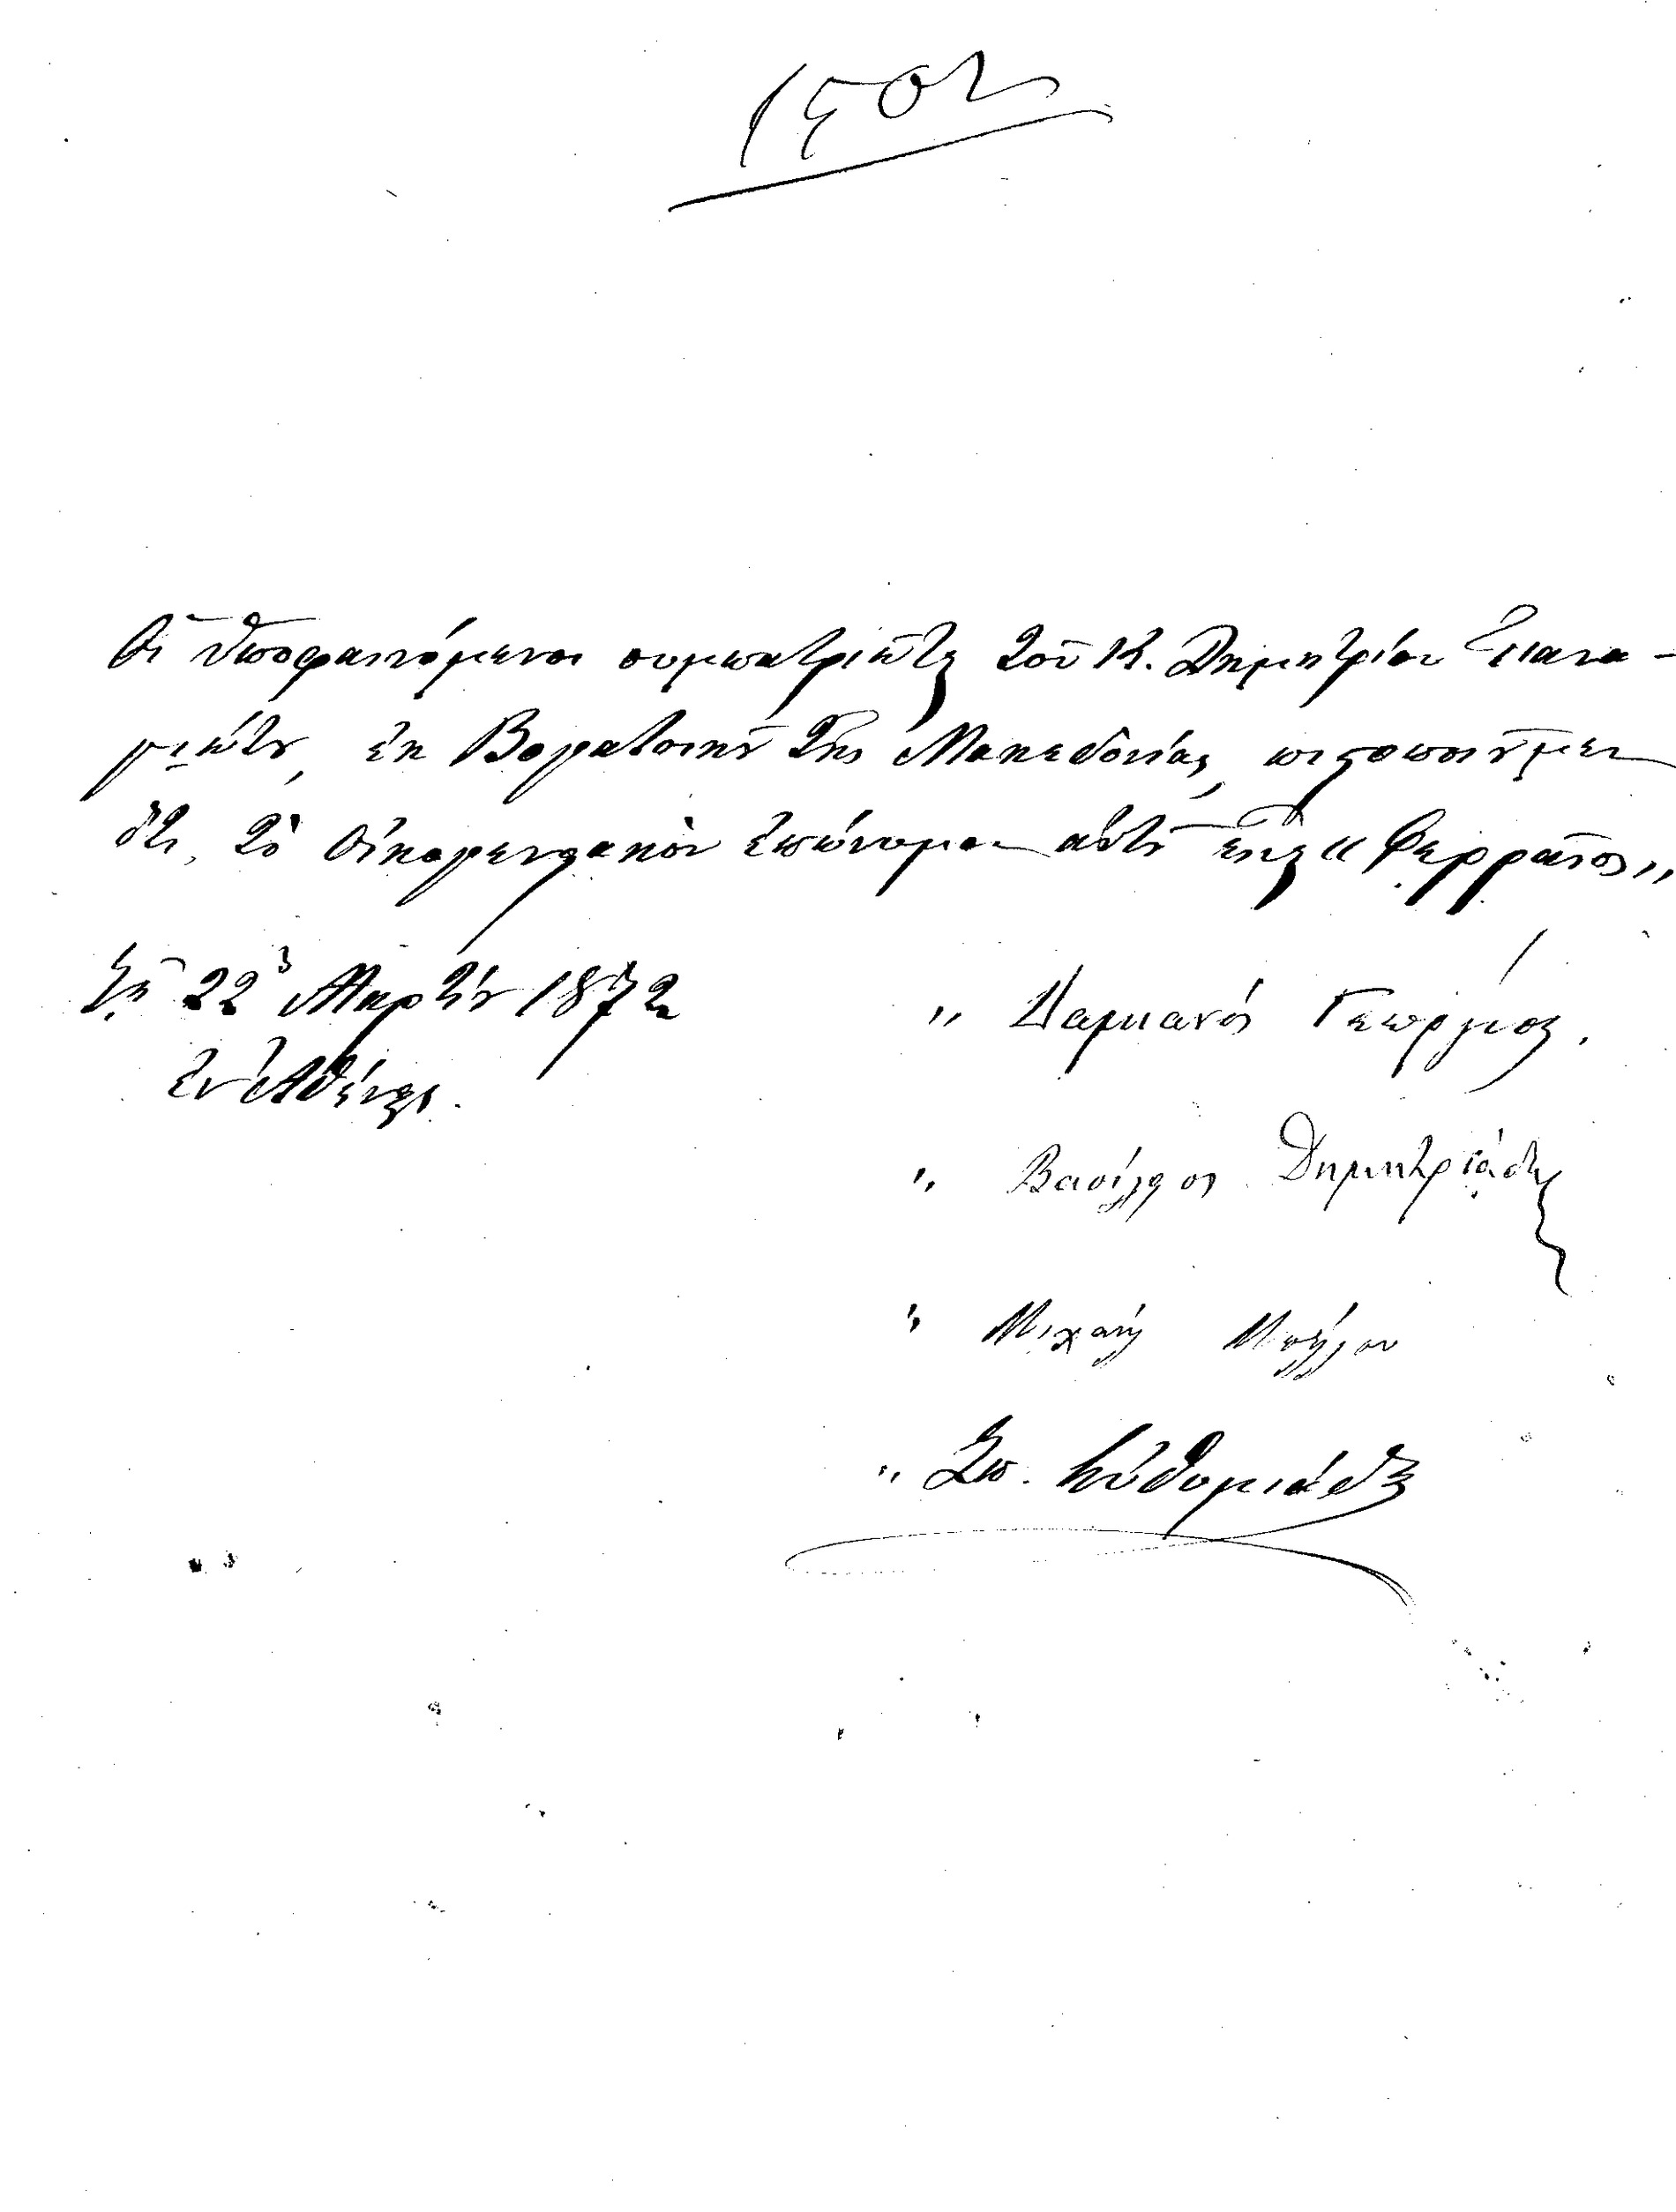 1502
Οἱ ὑποφαινόμενοι συμπατριῶται τοῦ Κ. Δημητρίου
ἐκ Βογατσικοῦ τῆς Μακεδονίας, πιστοποιοῦμεν
ὅτι, τὸ οἰκογενειακὸν ἐπώνυμον αὐτοῦ εἶναι « Φερραῖος "
Τῇ 22 Μαρτίου 1872
Ἐν Ἀθήναις.
" Δαμιανός Γεώργιος.
" Βασίλειος Δημητριάδης
" Μιχαήλ
" Σπ. Εὐθυμιάδης